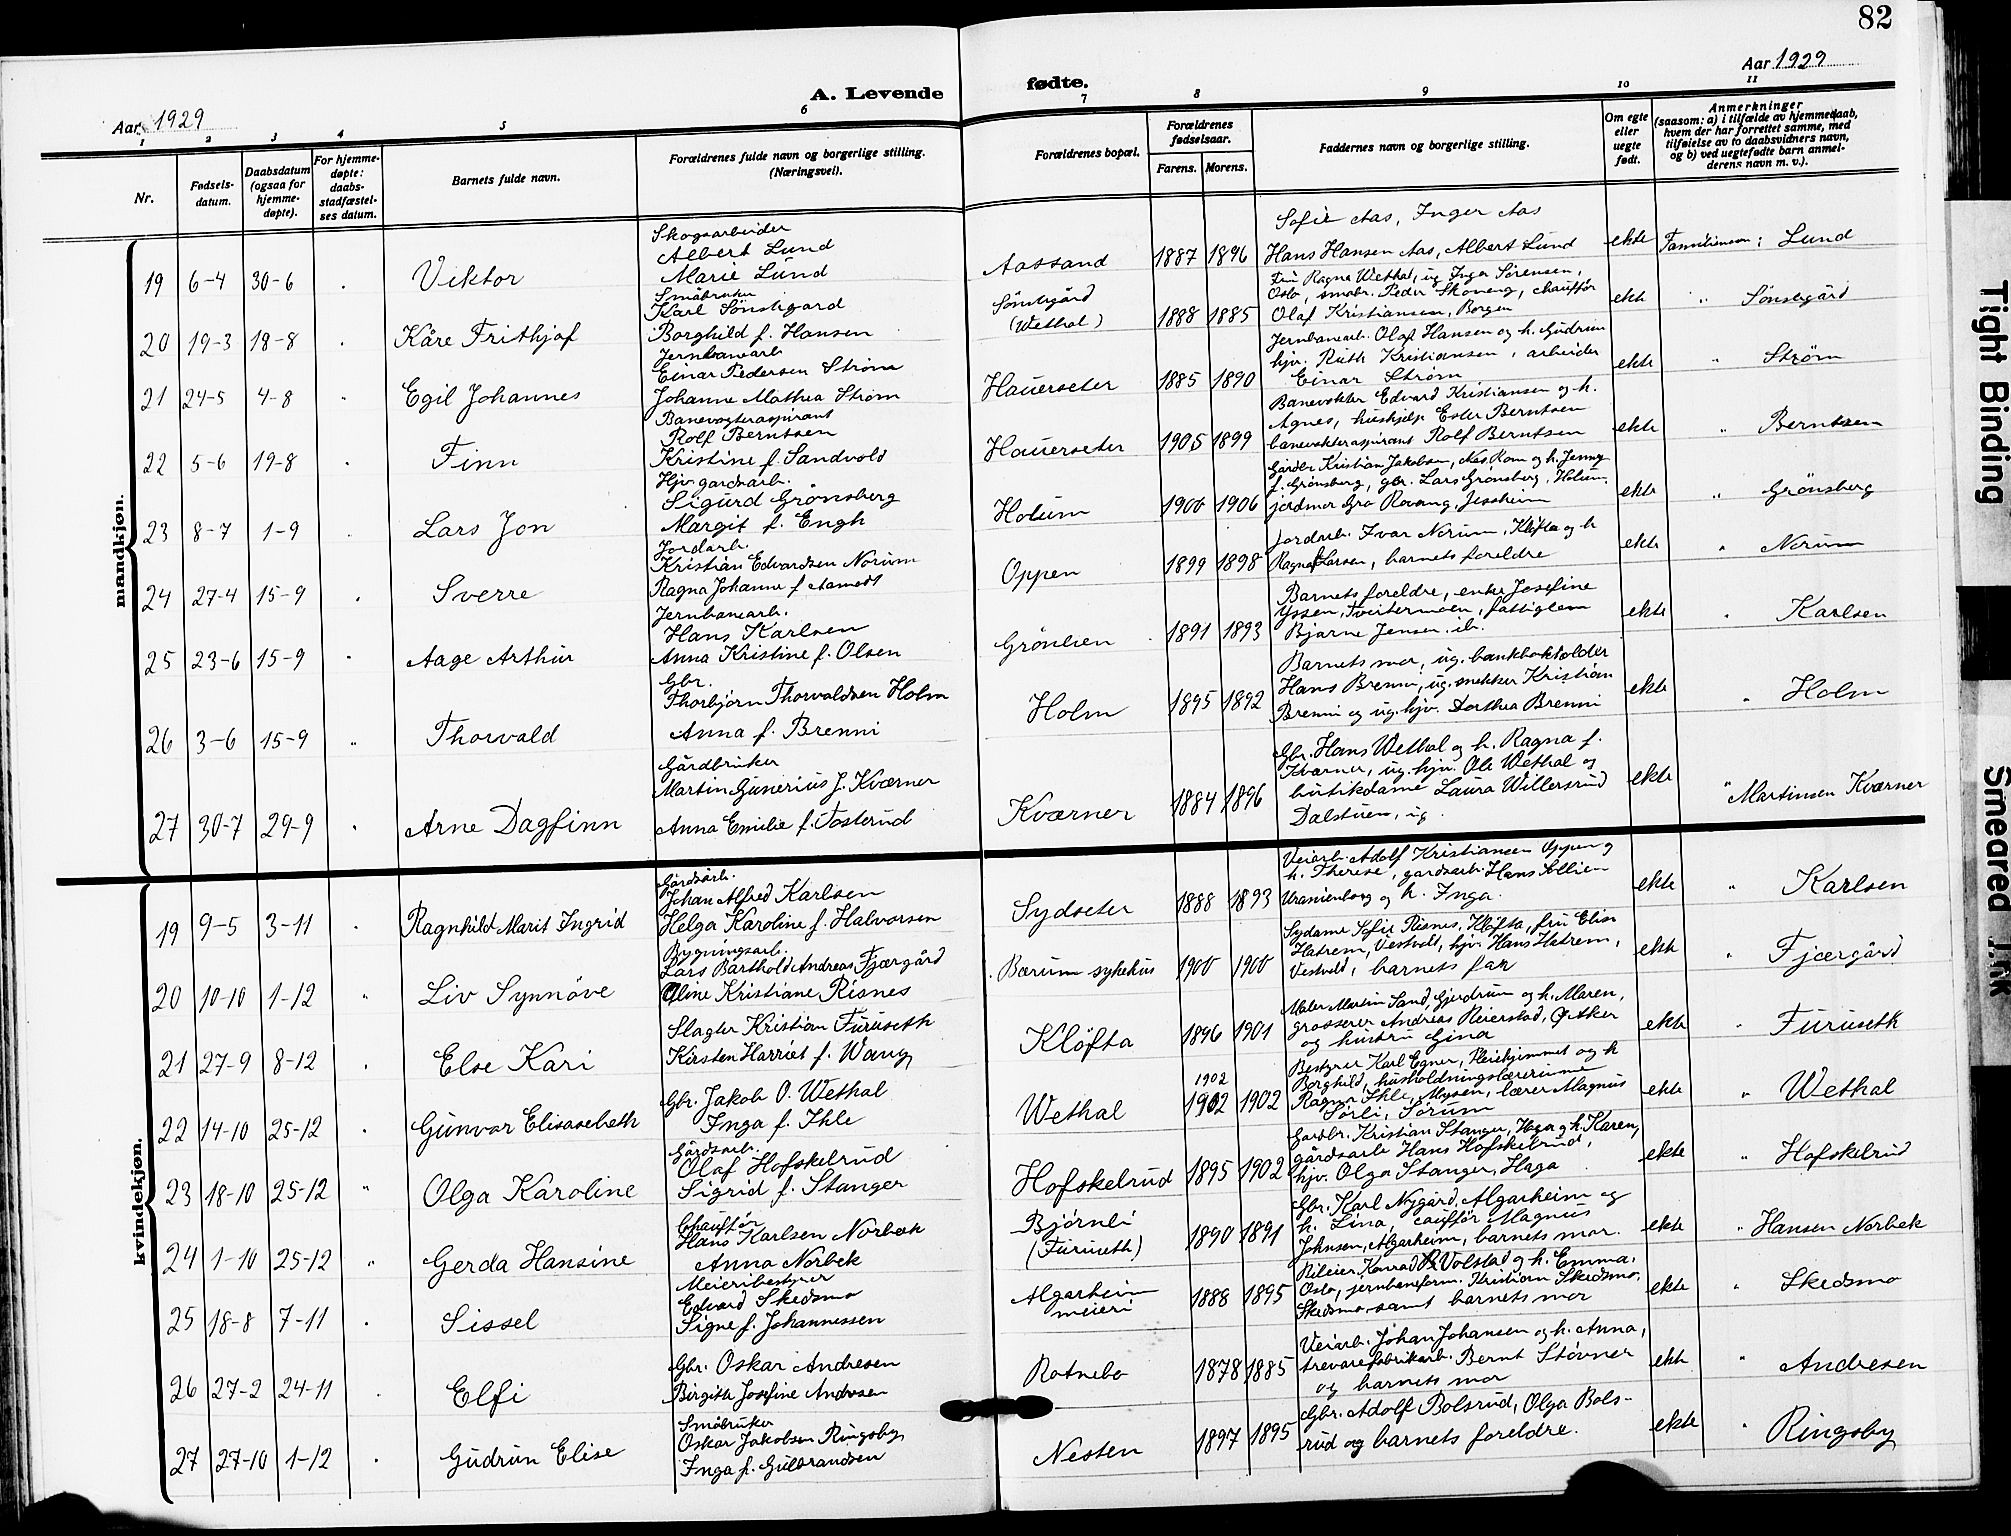 82
Aar 1929
A. Levende
fødte.
Aar 1929
1 2 3 4 5 6 7 8 9 10 11
Nr.
Fødsels-
datum.
Daabsdatum
(ogsaa for
hjemme-
døpte).
For hjemme-
døpte:
daabs-
stadfæstel-
ses datum.
Barnets fulde navn.
Forældrenes fulde navn og borgerlige stilling.
(Næringsvei).
Forældrenes bopæl.
Forældrenes
fødselsaar.
Farens. Morens.
Faddernes navn og borgerlige stilling.
Om egte
eller
uegte
født.
Anmerkninger
(saasom: a) i tilfælde av hjemmedaab,
hvem der har forrettet samme, med
tilføielse av to daabsvidners navn,
og b) ved uegtefødte barn anmel-
derens navn m. v.).
mandkjøn.
19 6-4 30-6 Viktor
Skogsarbeider
Albert Lund
Marie Lund
Aassand 1887 1896
Sofie Aas, Inger Aas
Hans Hansen Aas, Albert Lund
ekte Familienavn: Lund
20 19-3 18-8 Kåre Frithjof
Småbruker
Karl Sönstegård
Borghild f. Hansen
Sönstegård
(Wethal)
1888 1885
Fru Ragna Wethal, ug. Inga Sörensen,
Oslo, småbr. Peder Skoveng, chauffør
Olaf Kristiansen, Borgen
ekte " Sönstegård
21 24-5 4-8 " Egil Johannes
Jernbanearb.
Einar Pedersen Ström
Johanne Mathea Ström
Hauerseter 1885 1890
Jernbanearb. Olaf Hansen og h. Gudrun
hjv. Ruth Kristiansen, arbeider
Einar Ström
ekte " Ström
22 5-6 19-8 Finn
Banevogteraspirant
Rolf Berntsen
Kristine f. Sandvold
Hauerseter 1905 1899
Banevokter Edvard Kristiansen og h.
Agnes, hushjelp Ester Berntsen
banevokteraspirant Rolf Berntsen
ekte " Berntsen
23 8-7 1-9 Lars Jon
Hjv. gardsarb.
Sigurd Grönsberg
Margit f. Engh
Holum 1900 1906
Gårdbr. Kristian Jakobsen, Nes, Rom og h. Jenny
f. Grönsberg, gbr. Lars Grönsberg, Holum,
jordmor Gro Roang, Jessheim
ekte " Grönsberg
24 27-4 15-9 Sverre
Jordarb.
Kristian Edvardsen Norum
Ragna Johanne f. Aamodt
Oppen 1899 1898
Jordarb. Ivar Norum, Kløfta og h
Ragna f Larsen, barnets foreldre
ekte " Norum
25 23-6 15-9 " Aage Arthur
Jernbanearb.
Hans Karlsen
Anna Kristine f. Olsen
Grönlien 1891 1893
Barnets foreldre, enke Josefine
Yssen, Tveitermoen, fattiglem
Bjarne Jensen ib.
ekte " Karlsen
26 3-6 15-9 " Thorvald
Gbr.
Thorbjörn Thorvaldsen Holm
Anna f. Brenni
Holm 1895 1892
Barnets mor, ug. bankbokholder
Hans Brenni, ug. snekker Kristian
Brenni og ug. hjv. Dorthea Brenni
ekte " Holm
27 30-7 29-9 Arne Dagfinn
Gårdbruker
Martin Gunerius J. Kværner
Anna Emilie f. Tosterud
Kværner 1884 1896
Gbr. Hans Wethal og h. Ragna f.
Kværner, ug. hjv. Ole Wethal og
butikdame Laura Willersrud
Dalstuen, ug.
ekte " Martinsen Kværner
kvindekjøn.
19 9-5 3-11 Ragnhild Marit Ingrid
Gårdsarb.
Johan Alfred Karlsen
Helga Karoline f. Halvorsen
Sydseter 1888 1893
Veiarb. Adolf Kristiansen Oppen og
h. Therese, gardsarb. Hans Lillien
Uranienborg og h. Inga.
ekte " Karlsen
20 10-10 1-12 " Liv Synnöve
Bygningsarb.
Lars Barthold Andreas Fjærgård
Oline Kristiane Risnes
Bærum sykehus 1900 1900
Sydame Sofie Risnes, Kløfta, fru Elise
Hatrem, Vestvold, hjv. Hans Hatrem,
Vestvold, barnets far
ekte " Fjærgård
21 27-9 8-12 Else Kari
Slagter Kristian Furuseth
Kirsten Harriet f. Wang
Klöfta 1896 1901
Maler Martin Sand, Gjerdrum og h. Maren,
grosserer Andreas Reierstad, Ø. Aker
og hustru Gina
ekte " Furuseth
22 14-10 25-12 Gunvor Elisasebeth
Gbr. Jakob O. Wethal
Inga f. Ihle
Wethal
1902
1902 1902
Bestyrer Karl Egner, Pleiehjemmet og h
Borghild, husholdningslærerinne
Ragna Ihle, Mysen, lærer Magnus
Sörli, Sörum
ekte " Wethal
23 18-10 25-12 " Olga Karoline
Gårdsarb.
Olaf Hofskelrud
Sigrid f. Stanger
Hofskelrud 1895 1902
Gardbr. Kristian Stanger, Haga og h. Karen,
gårdsarb Hans Hofskelrud,
hjv. Olga Stanger, Haga
ekte " Hofskelrud
24 1-10 25-12 " Gerda Hansine
Chauffør
Hans Karlsen Norbek
Anna Norbek
Björnli
(Furuseth)
1890 1891
Gbr. Karl Nygård, Algarheim og
h. Lina, cauffør Magnus
Johnsen, Algarheim, barnets mor.
ekte " Hansen Norbek
25 18-8 7-11 Sissel
Meieribestyrer
Edvard Skedsmo
Signe f. Johannessen
Algarheim
meieri
1888 1895
Bileier Konrad R. Volstad og h. Emma,
Oslo, jernbaneform. Kristian Skedsmo,
Skedsmo samt barnets mor
ekte " Skedsmo
26 27-2 24-11 Elfi
Gbr. Oskar Andresen
Birgitte Josefine Andresen
Rotnebo 1878 1885
Veiarb. Johan Johansen og h. Anna,
trevarefabrikarb. Bernt Stövner
og barnets mor
ekte " Andresen
27 27-10 1-12 Gudrun Elise
Småbruker
Oskar Jakobsen Ringsby
Inga f. Gulbrandsen
Nesten 1897 1895
Gbr. Adolf Bolsrud, Olga Bols-
rud og barnets foreldre.
ekte " Ringsby
Tight Binding
Smeared Ink